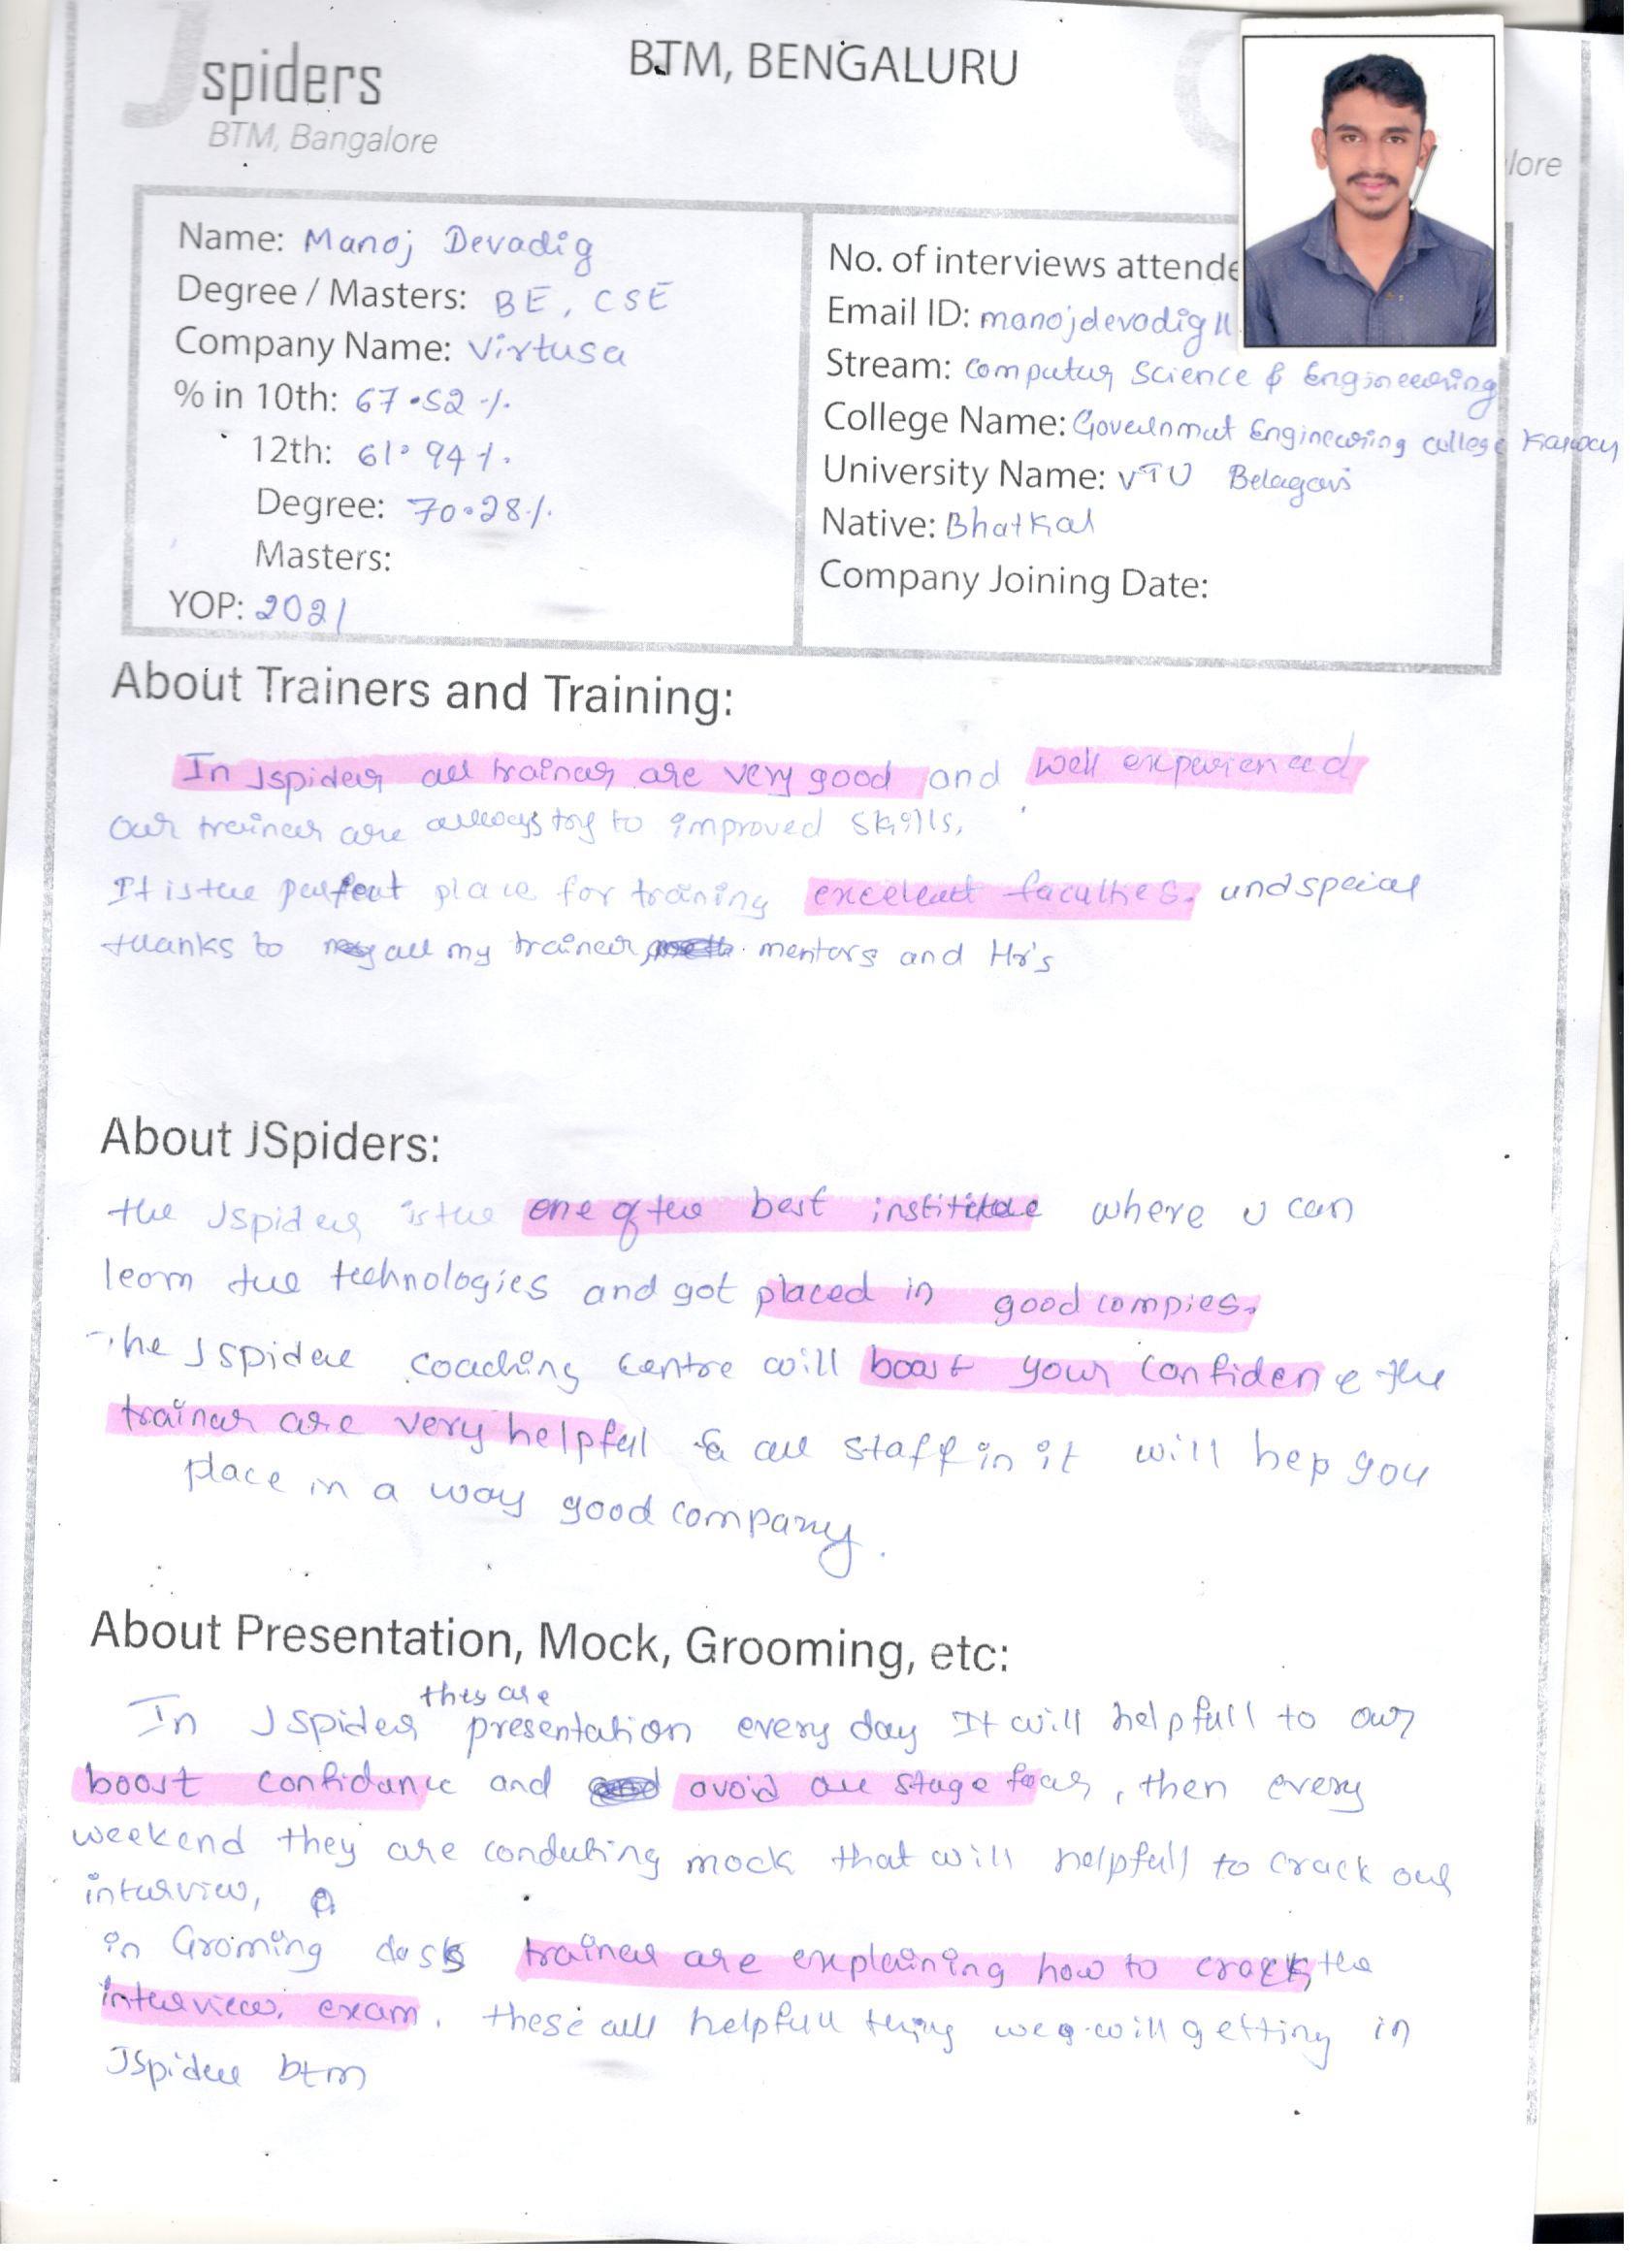 Jspiders
BTM, Bangalore
BTM, BENGALURU
lore
Name: Manoj Devadig
Degree / Masters: BE, CSE
Company Name: Virtusa
% in 10th: 67.52 %
12th: 61.94 %
Degree: 70.28 %
Masters:
YOP: 2021
No. of interviews attende
Email ID: manojdevadig11
Stream: Computer Science & Engineering
College Name: Government Engineering college Karwar
University Name: VTU Belagavi
Native: Bhatkal
Company Joining Date:
About Trainers and Training:
In Jspiders all trainers are very good and well experienced
our trainer are always try to improved skills,
It is the perfect place for training excelent faculties. and special
thanks to all my trainer mentors and Hr's
About JSpiders:
the Jspiders is the one of the best institute where u can
learn the technologies and got placed in good compies.
The Jspider coaching centre will boost your confidence the
trainer are very helpful & all staff in it will hep you
place in a way good company.
About Presentation, Mock, Grooming, etc:
they are
In Jspiders presentation every day It will helpfull to our
boost confidance and avoid our stage fear, then every
weekend they are conducting mock that will helpfull to crack our
interview,
in Groming trainer are explaining how to crack the
interview, exam. these all helpfull thing we will getting in
JSpider btm